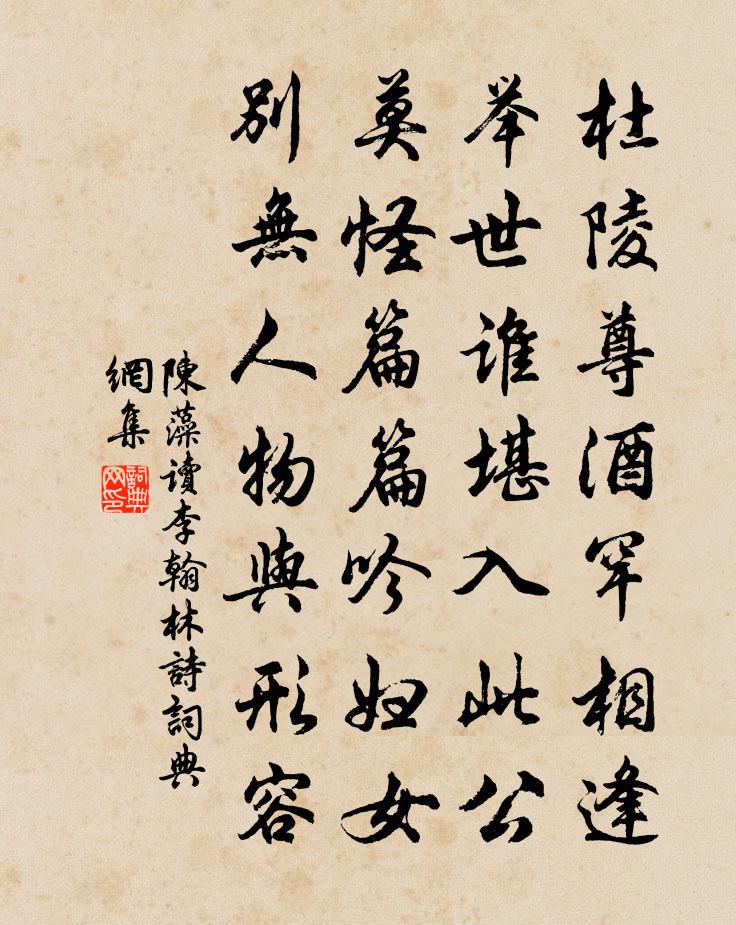 杜陵尊酒罕相逢
举世谁堪入此公
莫怪篇篇吟妇女
別無人物與形容
陳藻读李翰林詩詞典
網集
詞典網印